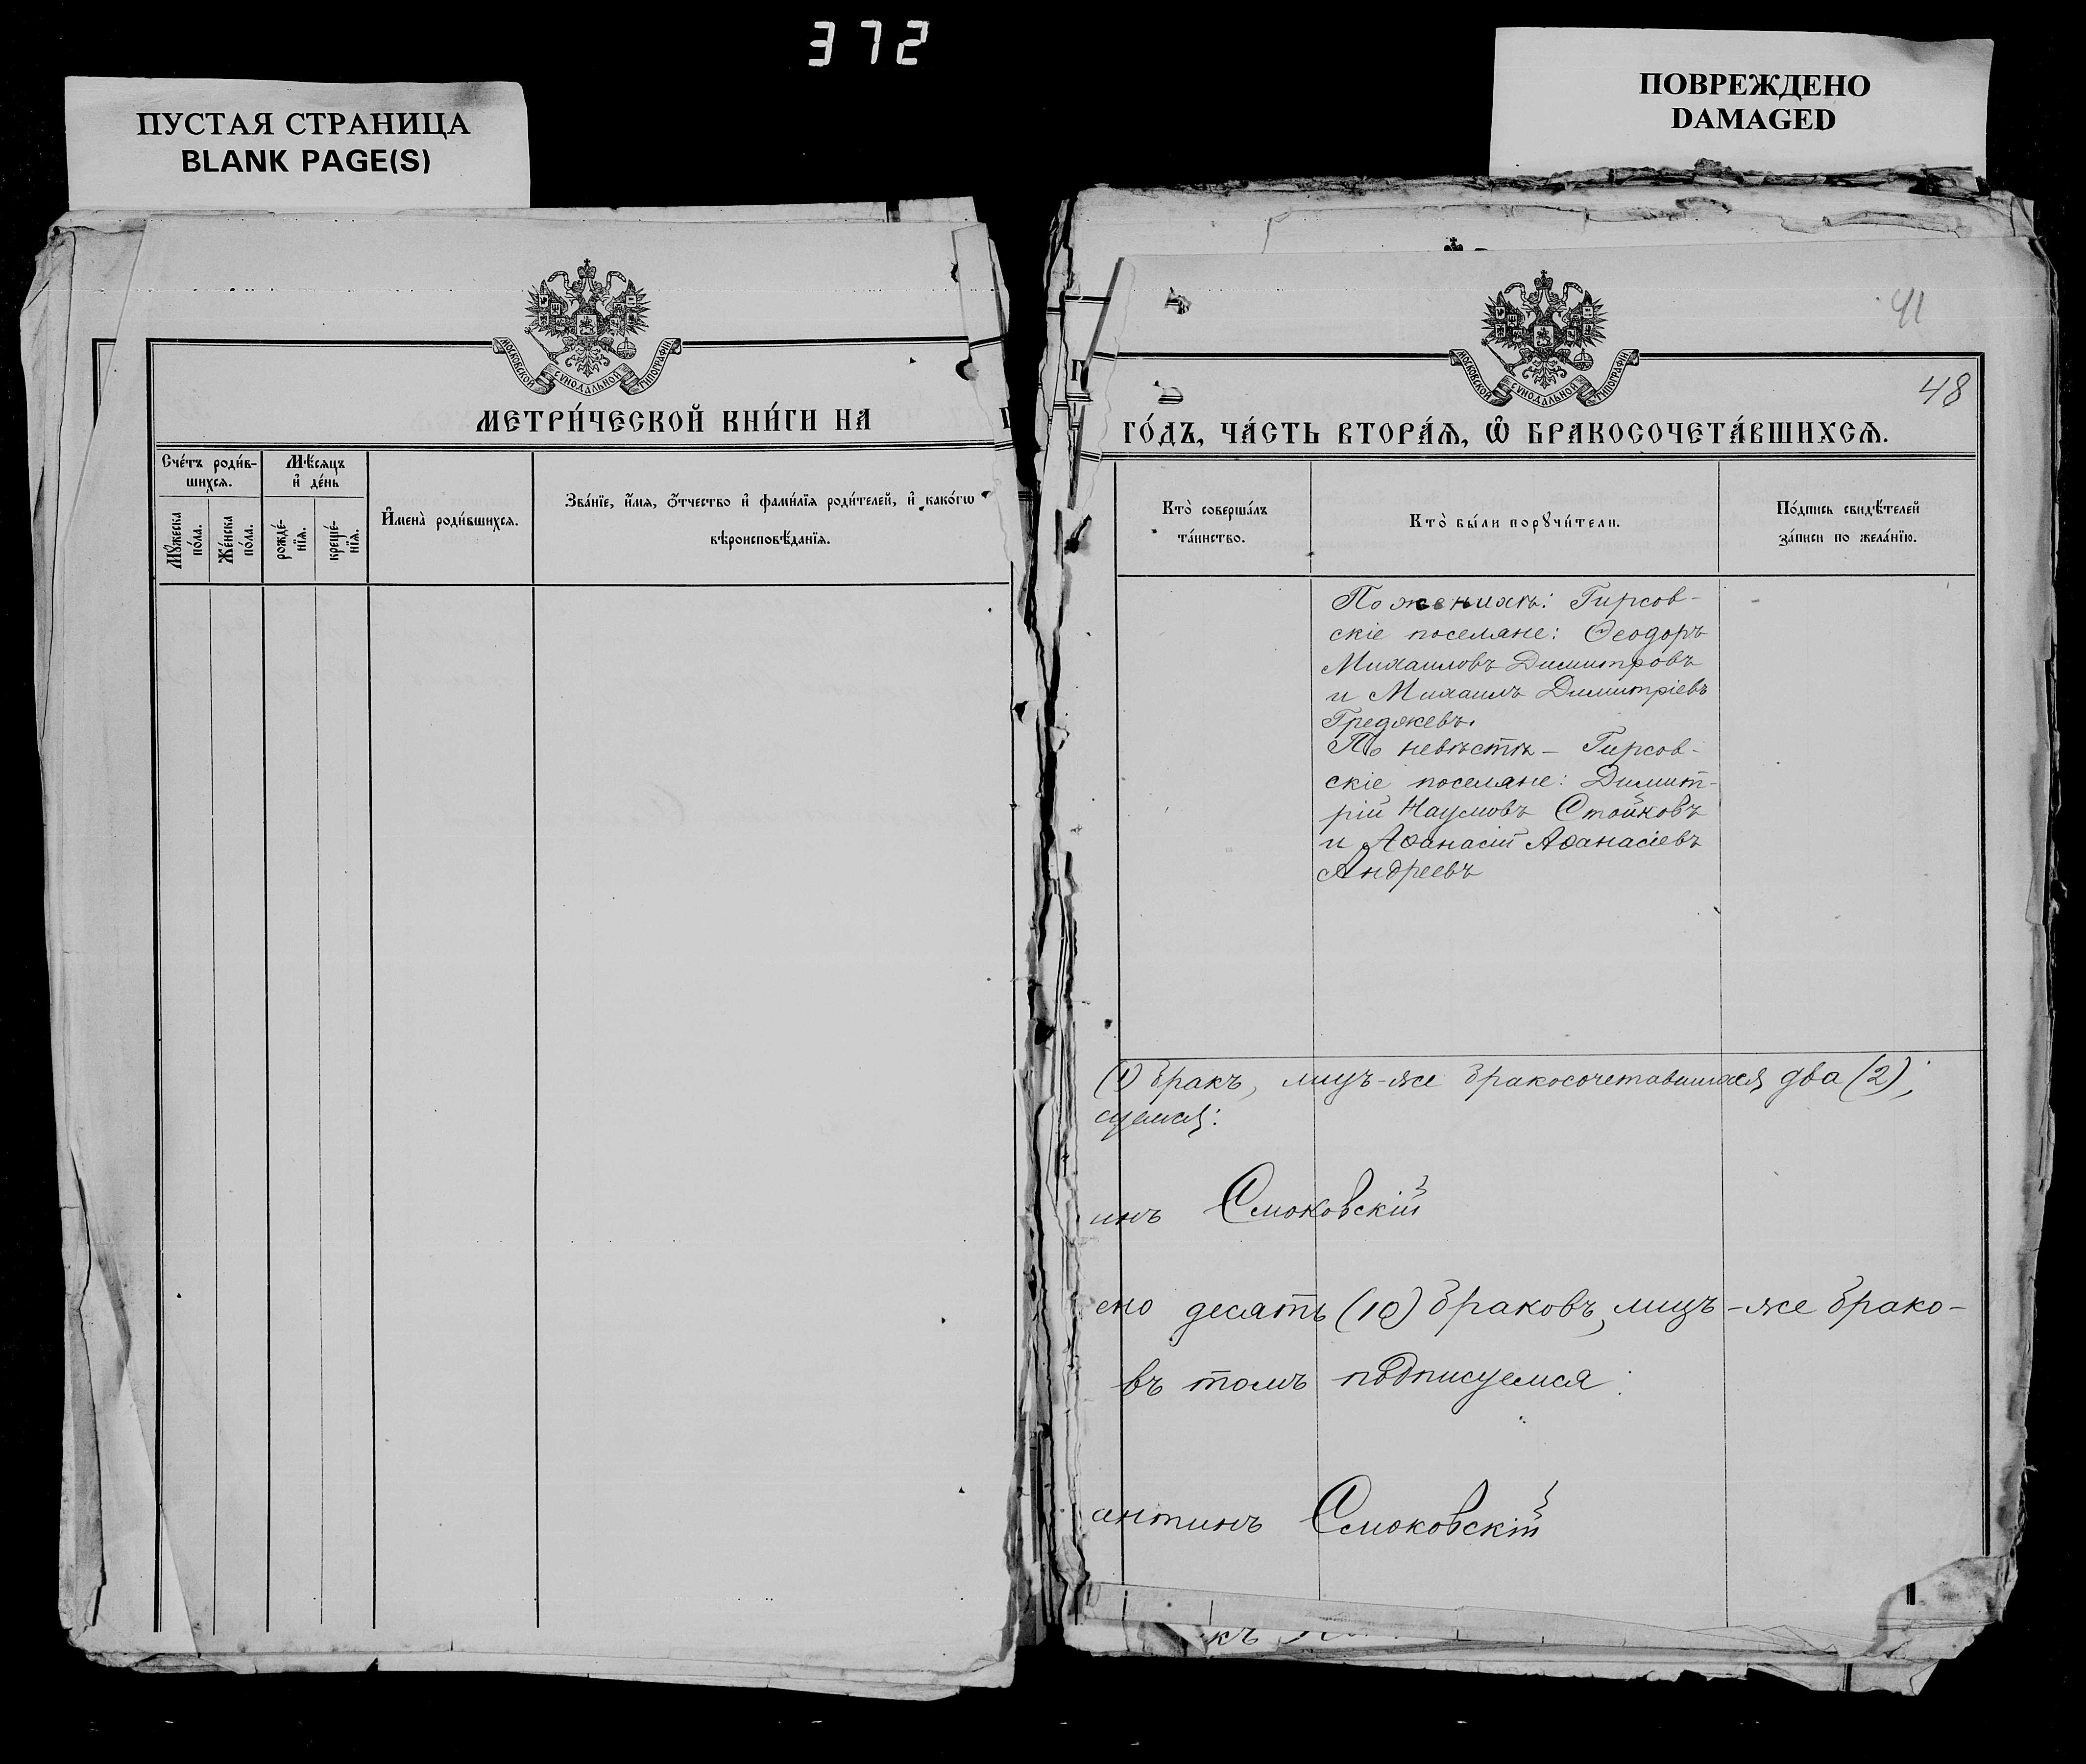 372
ПУСТАЯ СТРАНИЦА
BLANK PAGE(S)
ПОВРЕЖДЕНО
DAMAGED
МОСКОВСКОЙ СУНОДАЛЬНОЙ ТИПОГРАФІИ
МЕТРИ́ЧЕСКОЙ КНИ́ГИ НА
Сче́тъ роди́в-
шихся.
Мѣ́сяцъ
и҆ де́нь
Мꙋ́жеска
по́ла.
Же́нска
по́ла.
рожде́-
нїя.
креще́-
нїя.
И҆мена̀ роди́вшихся.
Зва́нїе, и҆́мя, ѻ҆́тчество и҆ фами́лїя роди́телей, и҆ како́гѡ
вѣроисповѣ́данїя.
41
МОСКОВСКОЙ СУНОДАЛЬНОЙ ТИПОГРАФІИ
48
ГО́ДЪ, ЧА́СТЬ ВТОРА́Я, Ѡ҆ БРАКОСОЧЕТА́ВШИХСЯ.
Кто̀ соверша́лъ
та́инство.
Кто̀ бы́ли порꙋчи́тели.
По́дпись свидѣ́телей
за́писи по жела́нїю.
По женихѣ: Гирсов-
скіе поселяне: Ѳеодоръ
Михаиловъ Димитровъ
и Михаилъ Димитріевъ
Греджевъ.
По невѣстѣ – Гирсов-
скіе поселяне: Димит-
рій Наумовъ Стойковъ
и Аѳанасій Аѳанасіевъ
Андреевъ
(1) бракъ, лицъ-же бракосочетавшихся два (2);
суемся:
инъ Смоковскій
ено десять (10) браковъ, лицъ-же брако-
въ томъ подписуемся:
антинъ Смоковскій
къ